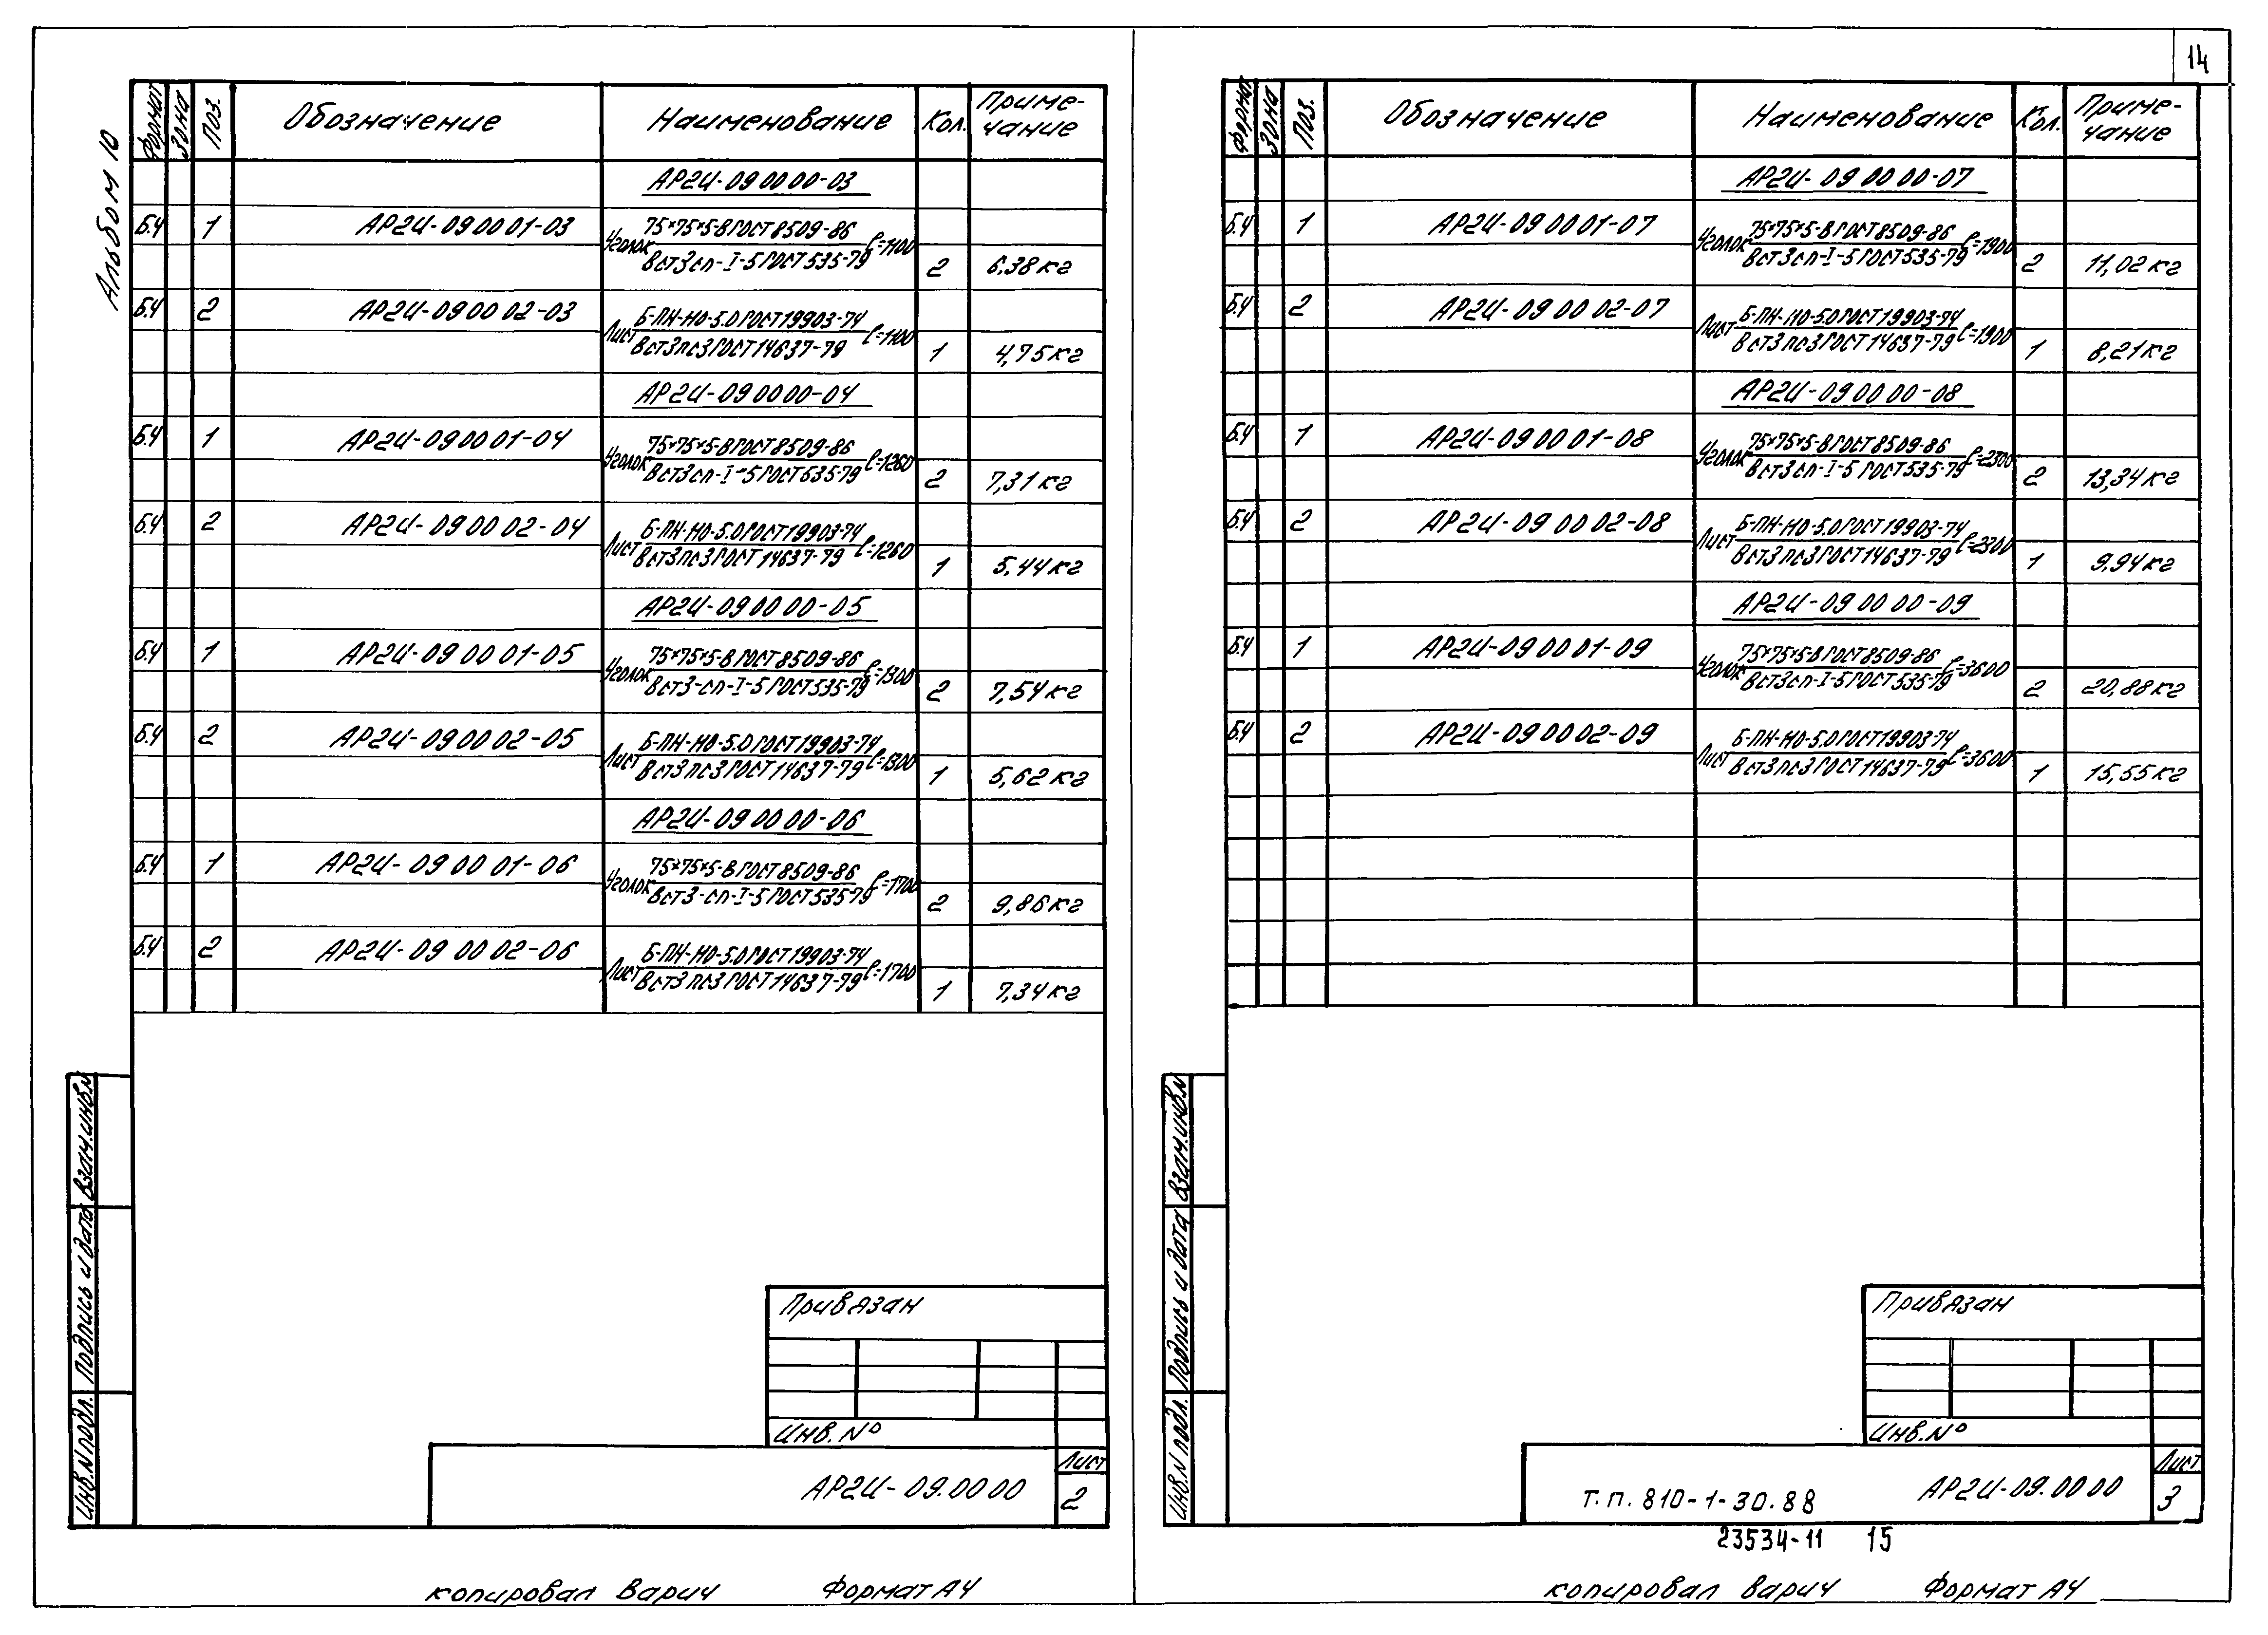 14
Альбом 10
Формат Зона Поз. Обозначение Наименование Кол. Приме-
чание
АР2И-09 00 00-03
Б.Ч 1 АР2И-09 00 01-03 Уголок 75×75×5-В ГОСТ 8509-86 ℓ=1100
Вст3сп-I-5 ГОСТ 535-79 2 6,38 кг
Б.Ч 2 АР2И-09 00 02-03 Лист Б-ПН-НО-5.0 ГОСТ 19903-74 ℓ=1100
Вст3пс3 ГОСТ 14637-79 1 4,75 кг
АР2И-09 00 00-04
Б.Ч 1 АР2И-09 00 01-04 Уголок 75×75×5-В ГОСТ 8509-86 ℓ=1260
Вст3сп-I-5 ГОСТ 535-79 2 7,31 кг
Б.Ч 2 АР2И-09 00 02-04 Лист Б-ПН-НО-5.0 ГОСТ 19903-74 ℓ=1260
Вст3пс3 ГОСТ 14637-79 1 5,44 кг
АР2И-09 00 00-05
Б.Ч 1 АР2И-09 00 01-05 Уголок 75×75×5-В ГОСТ 8509-86 ℓ=1300
Вст3-сп-I-5 ГОСТ 535-79 2 7,54 кг
Б.Ч 2 АР2И-09 00 02-05 Лист Б-ПН-НО-5.0 ГОСТ 19903-74 ℓ=1300
Вст3пс3 ГОСТ 14637-79 1 5,62 кг
АР2И-09 00 00-06
Б.Ч 1 АР2И-09 00 01-06 Уголок 75×75×5-В ГОСТ 8509-86 ℓ=1700
Вст3-сп-I-5 ГОСТ 535-79 2 9,86 кг
Б.Ч 2 АР2И-09 00 02-06 Лист Б-ПН-НО-5.0 ГОСТ 19903-74 ℓ=1700
Вст3пс3 ГОСТ 14637-79 1 7,34 кг
Инв.N подл. Подпись и дата Взам.инв.N
Привязан
Инв.№
АР2И-09.00 00
Лист
2
копировал Варич Формат А4
Формат Зона Поз. Обозначение Наименование Кол. Приме-
чание
АР2И-09 00 00-07
Б.Ч 1 АР2И-09 00 01-07 Уголок 75×75×5-В ГОСТ 8509-86 ℓ=1900
Вст3сп-I-5 ГОСТ 535-79 2 11,02 кг
Б.Ч 2 АР2И-09 00 02-07 Лист Б-ПН-НО-5.0 ГОСТ 19903-74 ℓ=1900
Вст3пс3 ГОСТ 14637-79 1 8,21 кг
АР2И-09 00 00-08
Б.Ч 1 АР2И-09 00 01-08 Уголок 75×75×5-В ГОСТ 8509-86 ℓ=2300
Вст3сп-I-5 ГОСТ 535-79 2 13,34 кг
Б.Ч 2 АР2И-09 00 02-08 Лист Б-ПН-НО-5.0 ГОСТ 19903-74 ℓ=2300
Вст3пс3 ГОСТ 14637-79 1 9,94 кг
АР2И-09 00 00-09
Б.Ч 1 АР2И-09 00 01-09 Уголок 75×75×5-В ГОСТ 8509-86 ℓ=3600
Вст3сп-I-5 ГОСТ 535-79 2 20,88 кг
Б.Ч 2 АР2И-09 00 02-09 Лист Б-ПН-НО-5.0 ГОСТ 19903-74 ℓ=3600
Вст3пс3 ГОСТ 14637-79 1 15,55 кг
Инв.N подл. Подпись и дата Взам.инв.N
Привязан
Инв.№
т.п. 810-1-30.88 АР2И-09.00 00
Лист
3
23534-11 15
копировал Варич Формат А4